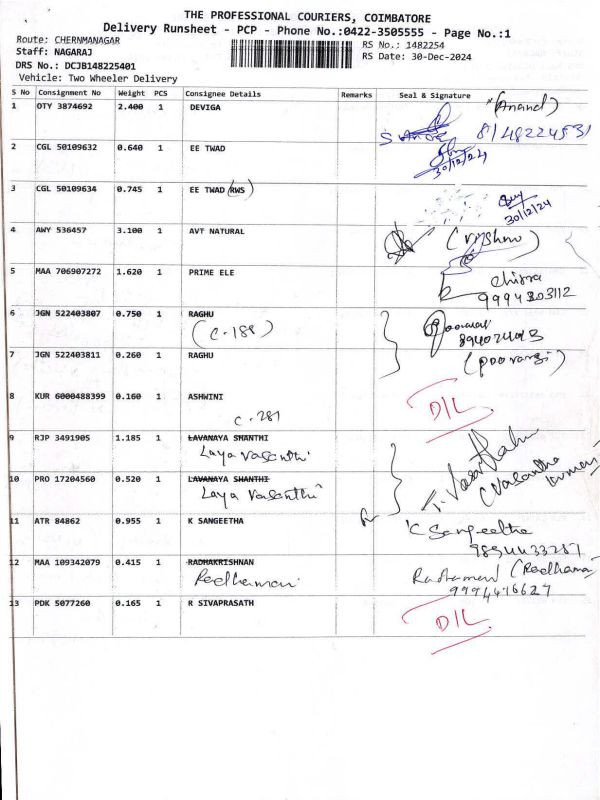 THE PROFESSIONAL COURIERS, COIMBATORE
Delivery Runsheet - PCP - Phone No.:0422-3505555 - Page No.:1
Route: CHERNMANAGAR
Staff: NAGARAJ
DRS No.: DCJB148225401
Vehicle: Two Wheeler Delivery
RS No.: 1482254
RS Date: 30-Dec-2024
S No Consignment No Weight PCS Consignee Details Remarks Seal & Signature
1 OTY 3874692 2.400 1 DEVIGA (Anand)
2 CGL 50109632 0.640 1 EE TWAD 30/12/24
3 CGL 50109634 0.745 1 EE TWAD (RWS) 30/12/24
4 AWY 536457 3.100 1 AVT NATURAL
5 MAA 706907272 1.620 1 PRIME ELE
6 JGN 522403807 0.750 1 RAGHU
(C-188)
7 JGN 522403811 0.260 1 RAGHU
8 KUR 6000488399 0.160 1 ASHWINI D/L
C-287
9 RJP 3491905 1.185 1 LAVANAYA SHANTHI
Laya Vasanthi
10 PRO 17204560 0.520 1 LAVANAYA SHANTHI
Laya Vasanthi
11 ATR 84862 0.955 1 K SANGEETHA
K Sangeetha
9894433287
12 MAA 109342079 0.415 1 RADHAKRISHNAN
Radhamani
9994416627
13 PDK 5077260 0.165 1 R SIVAPRASATH D/L